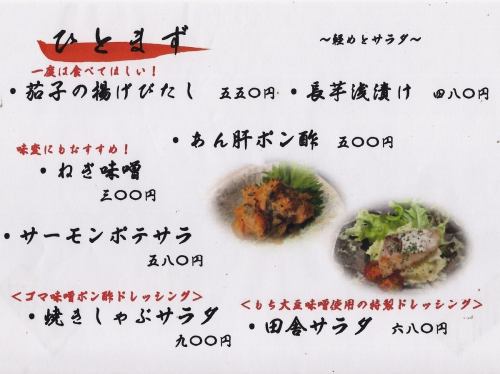 ひとまず
〜軽めとサラダ〜
一度は食べてほしい！
・茄子の揚げびたし 五五〇円
・長芋浅漬け 四八〇円
・あん肝ポン酢 五〇〇円
味変にもおすすめ！
・ねぎ味噌
三〇〇円
・サーモンポテサラ
五八〇円
＜ゴマ味噌ポン酢ドレッシング＞
・焼きしゃぶサラダ
九〇〇円
＜もち大豆味噌使用の特製ドレッシング＞
・田舎サラダ 六八〇円